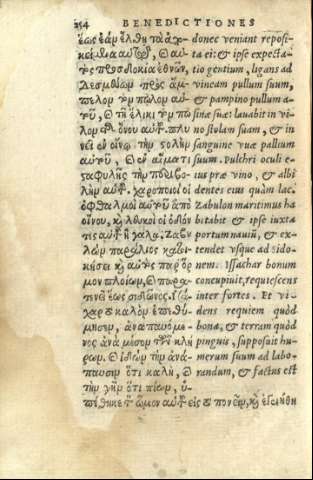 254 BENEDICTIONES
ἕως ἐὰν ἔλθῃ τὰ ἀπο
κείμενα αὐτῷ, καὶ αὐ
τὸς προσδοκία ἐθνῶν,
δεσμεύων πρὸς ἄμ-
πελον τὸν πῶλον αὐ
τοῦ, καὶ τῇ ἕλικι τὸν πῶ
λον τῆς ὄνου αὐτοῦ. πλυ
νεῖ ἐν οἴνῳ τὴν στολὴν
αὐτοῦ, καὶ ἐν αἵματι
σταφυλῆς τὴν περιβο
λὴν αὐτοῦ. χαροποιοὶ οἱ
ὀφθαλμοὶ αὐτοῦ ἀπὸ
οἴνου, καὶ λευκοὶ οἱ ὀδόν
τες αὐτοῦ ἢ γάλα. Ζαβου
λὼν παράλιος κατοι-
κήσει καὶ αὐτὸς παρ' ὅρ
μον πλοίων, καὶ παρα
τενεῖ ἕως σιδῶνος. Ἰσσά
χαρ τὸ καλὸν ἐπεθύ
μησεν, ἀναπαυόμε
νος ἀνὰ μέσον τῶν κλή
ρων. καὶ ἰδὼν τὴν ἀνά-
παυσιν ὅτι καλὴ, καὶ
τὴν γῆν ὅτι πίων, ὑ-
πέθηκε τὸν ὦμον αὐτοῦ εἰς τὸ πονεῖν, καὶ ἐγενήθη
donec veniant reposi-
ta ei: & ipse expecta-
tio gentium, ligans ad
vineam pullum suum,
& pampino pullum a-
sinæ suæ: lauabit in vi-
no stolam suam, & in
sanguine vuæ pallium
suum. Pulchri oculi e-
ius præ vino, & albi
dentes eius quàm lac.
Zabulon maritimus ha
bitabit & ipse iuxta
portum nauiũ, & ex-
tendet vsque ad Sido-
nem. Issachar bonum
concupiuit, requiescens
inter sortes. Et vi-
dens requiem quòd
bona, & terram quòd
pinguis, supposuit hu-
merum suum ad labo-
randum, & factus est